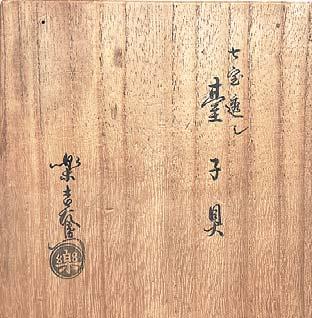 七宝透し
臺子貝
樂吉左衛門
樂